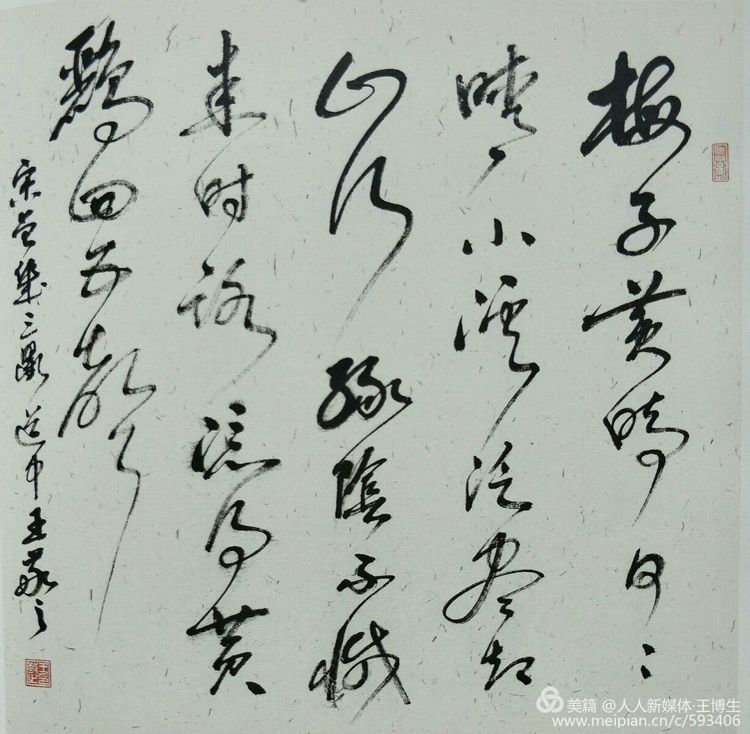 梅子黄時日日
晴小溪泛尽却
山行綠陰不減
来时路添得黄
鸝四五聲
宋曾幾三衢道中王
美篇 @人人新媒体·王博生
www.meipian.cn/c/593406